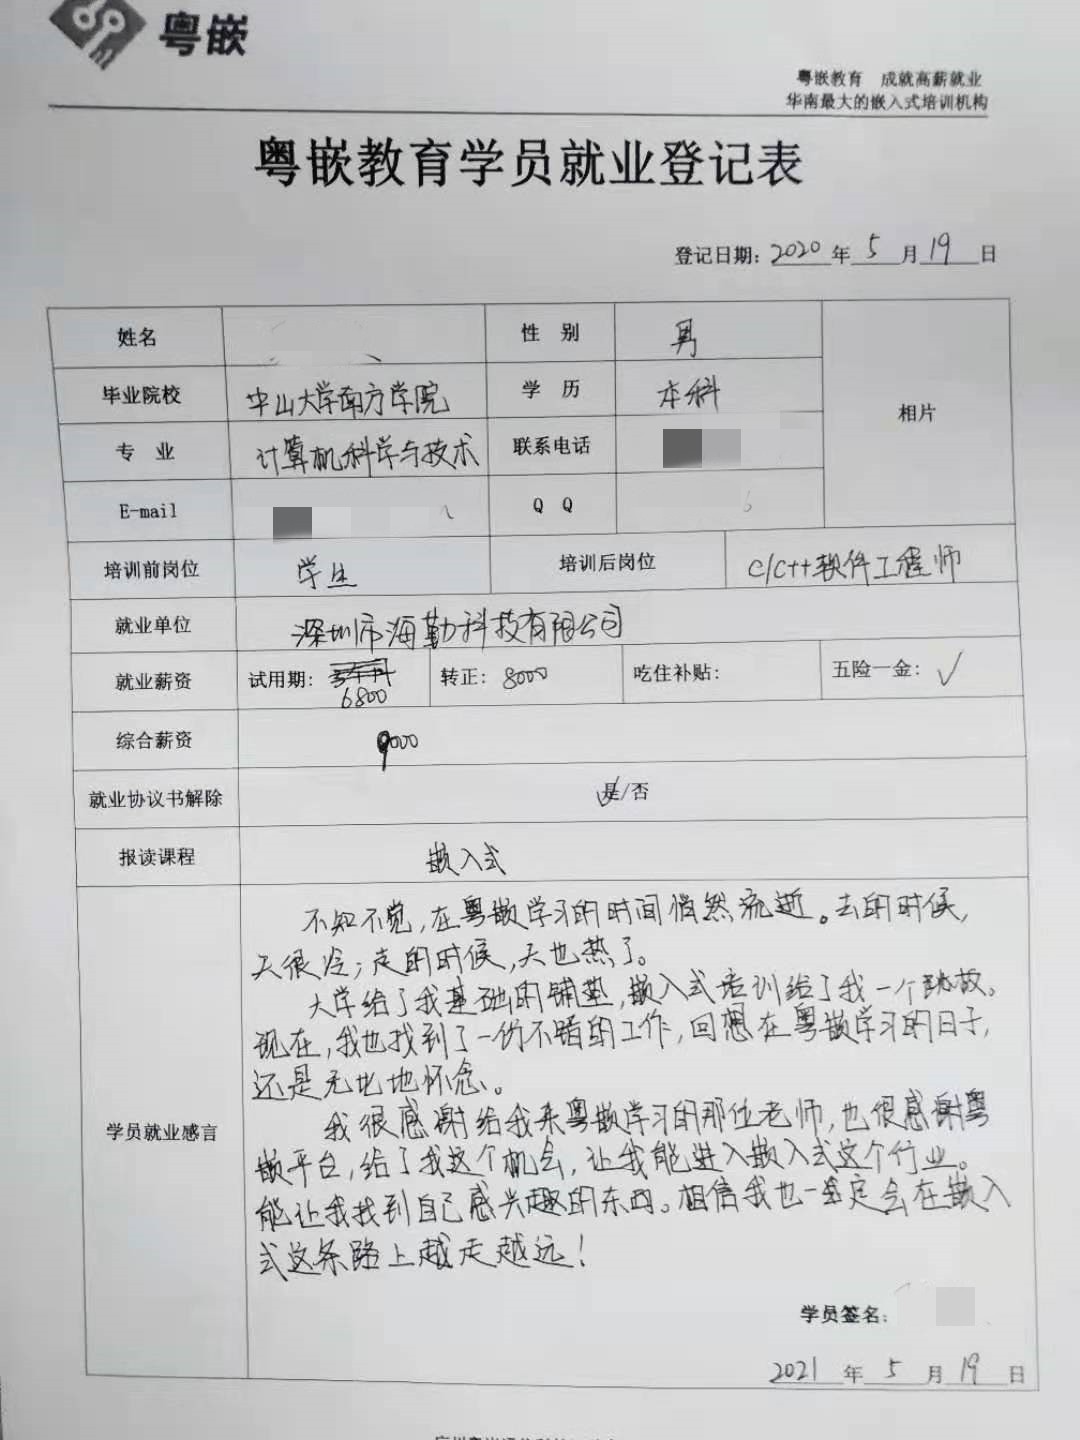 粤嵌
粤嵌教育 成就高薪就业
华南最大的嵌入式培训机构
粤嵌教育学员就业登记表
登记日期：2020年5月19日
姓名 性别 男 相片
毕业院校 中山大学南方学院 学历 本科
专业 计算机科学与技术 联系电话
E-mail QQ
培训前岗位 学生 培训后岗位 C/C++软件工程师
就业单位 深圳市海勤科技有限公司
就业薪资 试用期： 6800 转正：8000 吃住补贴： 五险一金：√
综合薪资 9000
就业协议书解除 是/否
报读课程 嵌入式
学员就业感言
不知不觉，在粤嵌学习的时间悄然流逝。去的时候，
天很冷；走的时候，天也热了。
大学给了我基础的铺垫，嵌入式培训给了我一个跳板。
现在，我也找到了一份不错的工作，回想在粤嵌学习的日子，
还是无比地怀念。
我很感谢给我来粤嵌学习的那位老师，也很感谢粤
嵌平台，给了我这个机会，让我能进入嵌入式这个行业。
能让我找到自己感兴趣的东西。相信我也一定会在嵌入
式这条路上越走越远！
学员签名：
2021年5月19日